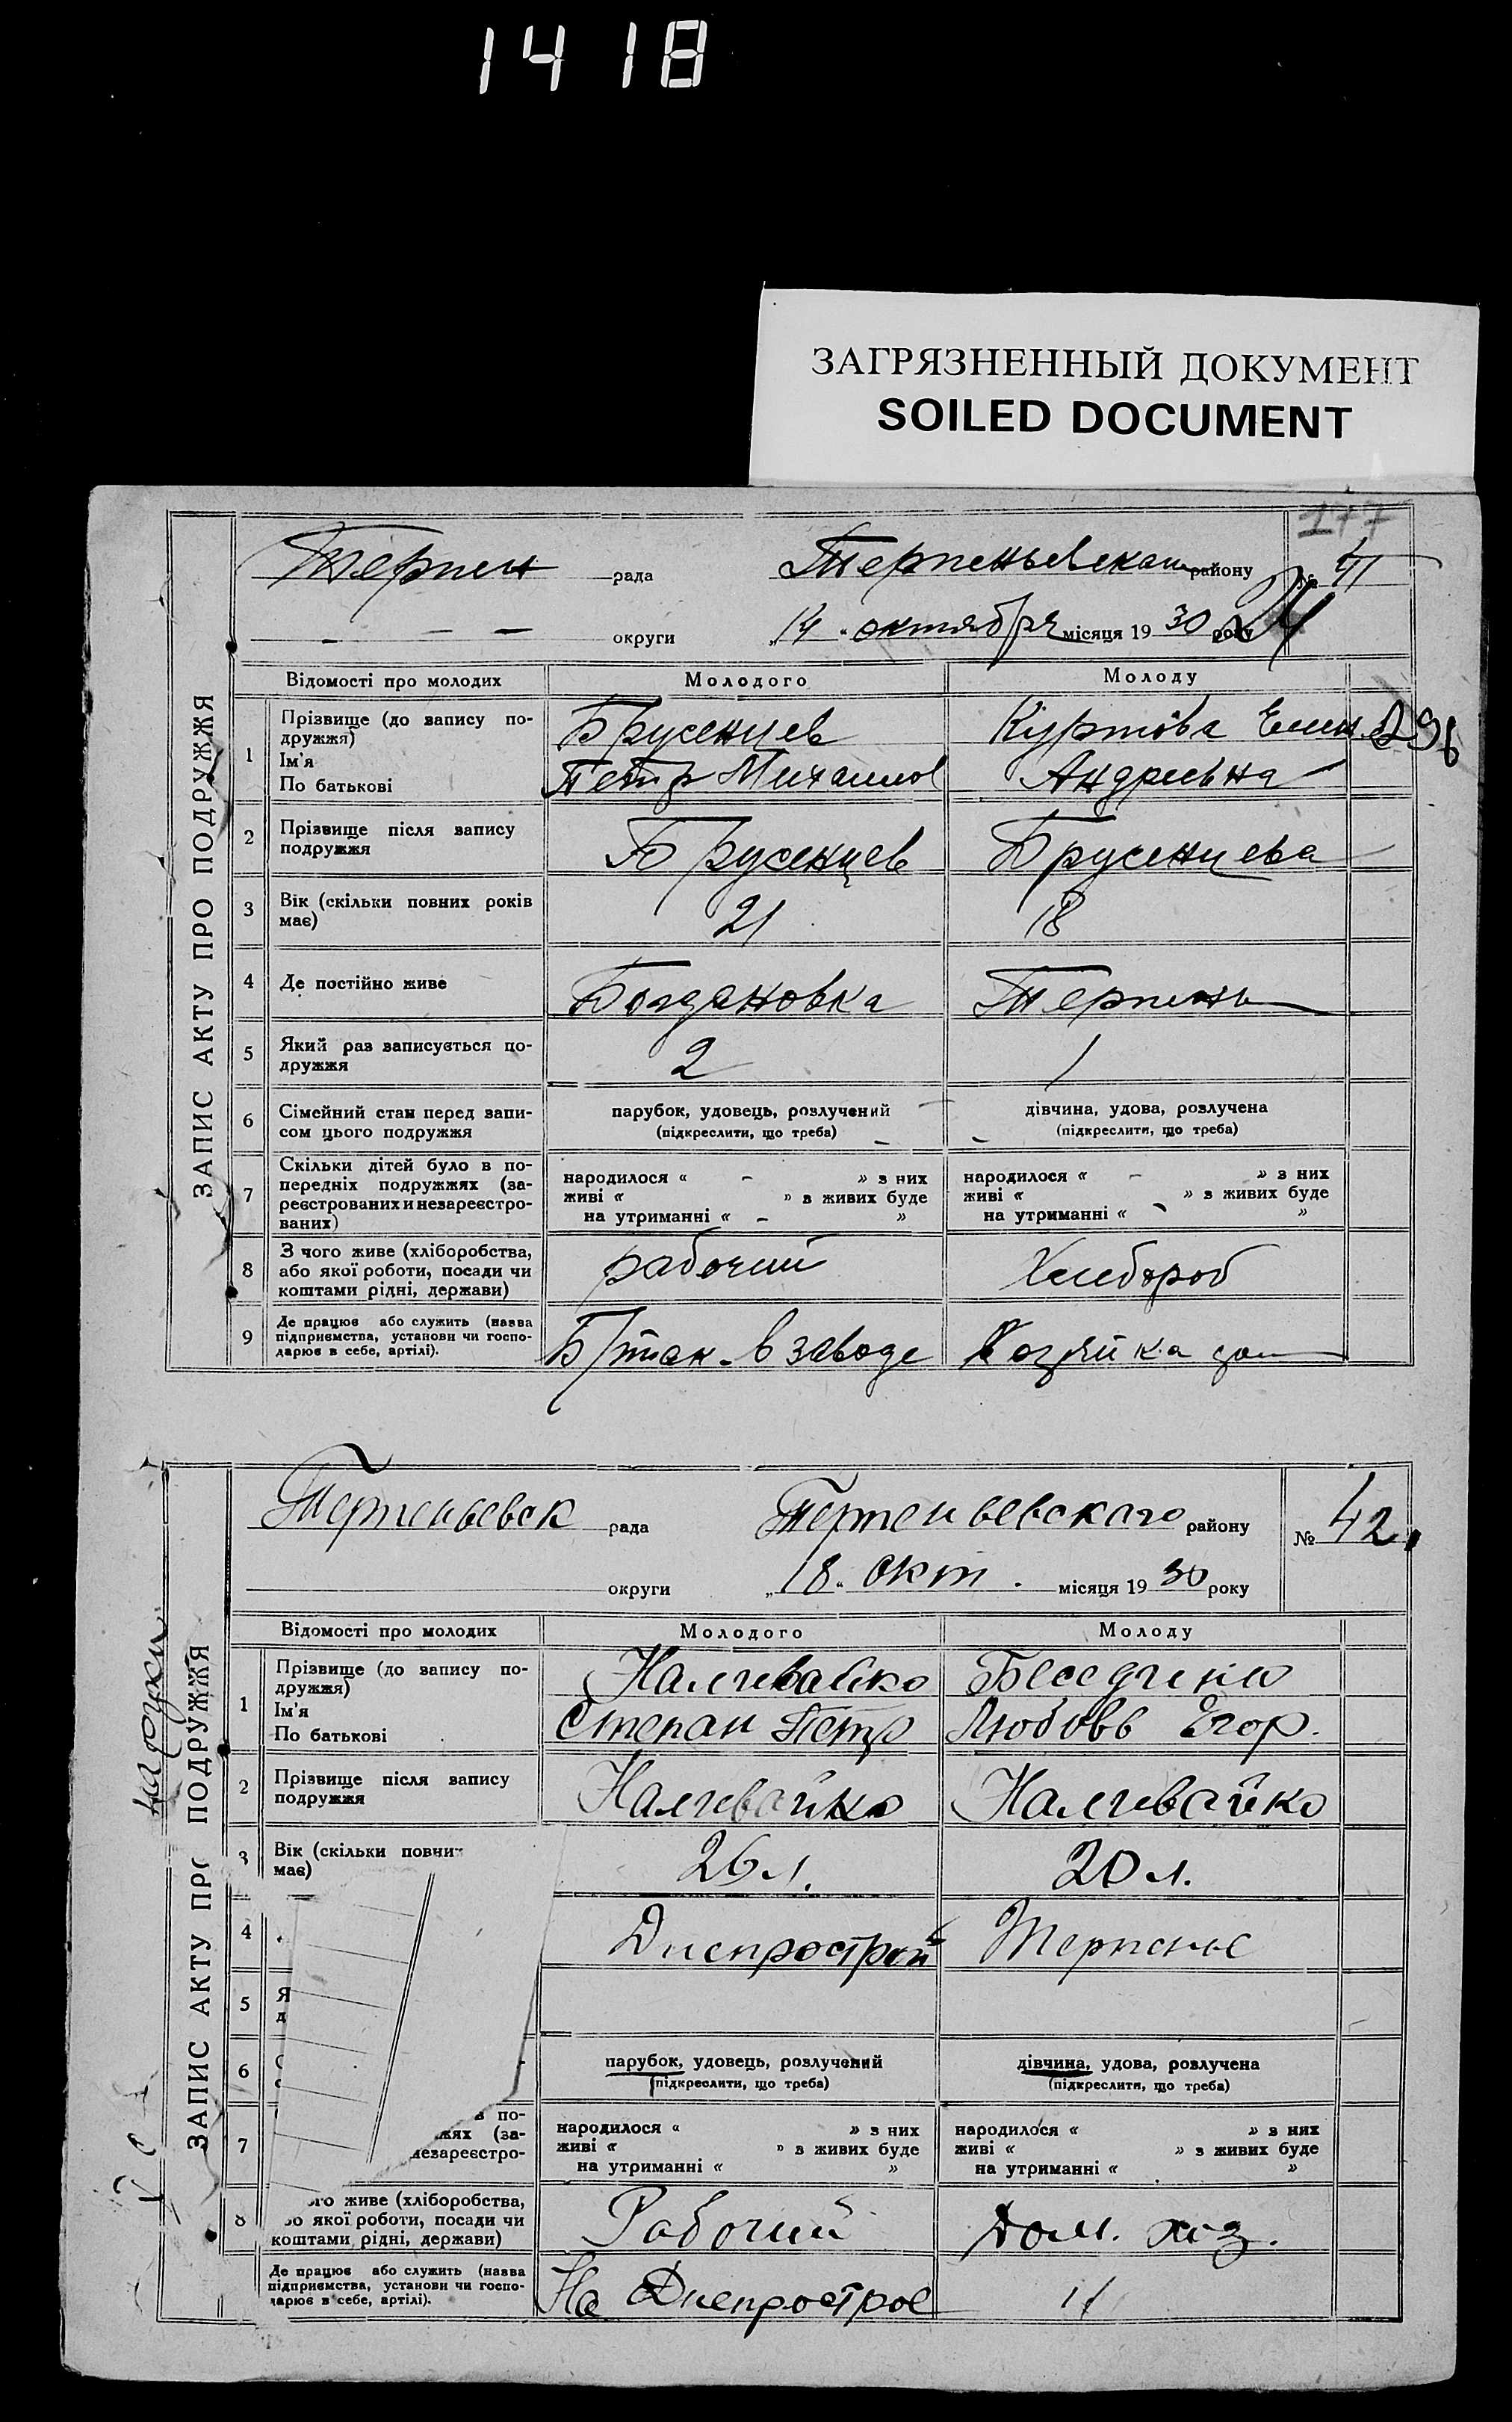 1418
ЗАГРЯЗНЕННЫЙ ДОКУМЕНТ
SOILED DOCUMENT
177
ЗАПИС АКТУ ПРО ПОДРУЖЖЯ
Терпен рада Терпеньевскаи району № 41
округи „14“ октября місяця 1930 року
24
Відомості про молодих Молодого Молоду
1 Прізвище (до запису подружжя) Брусенцев Куртова Елен
Ім'я
По батькові Петр Михаилов Андреевна
2 Прізвище після запису Брусенцев Брусенцева
подружжя
3 Вік (скільки повних років 21 18
має)
4 Де постійно живе Богдановка Терпень
5 Який раз записується по- 2 1
дружжя
6 Сімейний стан перед запи- парубок, удовець, розлучений дівчина, удова, розлучена
сом цього подружжя (підкреслити, що треба) (підкреслити, що треба)
7 Скільки дітей було в по-
передніх подружжях (за- народилося « – » з них народилося « – » з них
реєстрованих и незареєстро- живі « » з живих буде живі « » з живих буде
ваних) на утриманні « – » на утриманні « – »
8 З чого живе (хліборобства, рабочий Хлебороб
або якої роботи, посади чи
коштами рідні, держави)
9 Де працює або служить (назва
підприємства, установи чи госпо- Б/ток в заводе Хозяйка
дарює в себе, артілі).
ЗАПИС АКТУ ПРО ПОДРУЖЖЯ
на руки
Терпеньевск рада Терпеньевского району № 42
округи „18“ окт. місяця 1930 року
Відомості про молодих Молодого Молоду
1 Прізвище (до запису по- Наливайко Беседина
дружжя)
Ім'я Степан Петр Любовь Егор.
По батькові
2 Прізвище після запису Наливайко Наливайко
подружжя
3 Вік (скільки повни 26 л. 20 л.
має)
4 Днепрострой Терпенье
5 Я
д
6 парубок, удовець, розлучений дівчина, удова, розлучена
(підкреслити, що треба) (підкреслити, що треба)
7 в по- народилося « » з них народилося « » з них
жях (за- живі « » з живих буде живі « » з живих буде
незареєстро- на утриманні « » на утриманні « »
8 ого живе (хліборобства, Рабочий Дом. хоз.
бо якої роботи, посади чи
коштами рідні, держави)
Де працює або служить (назва
підприємства, установи чи госпо- На Днепрострое //
дарює в себе, артілі).